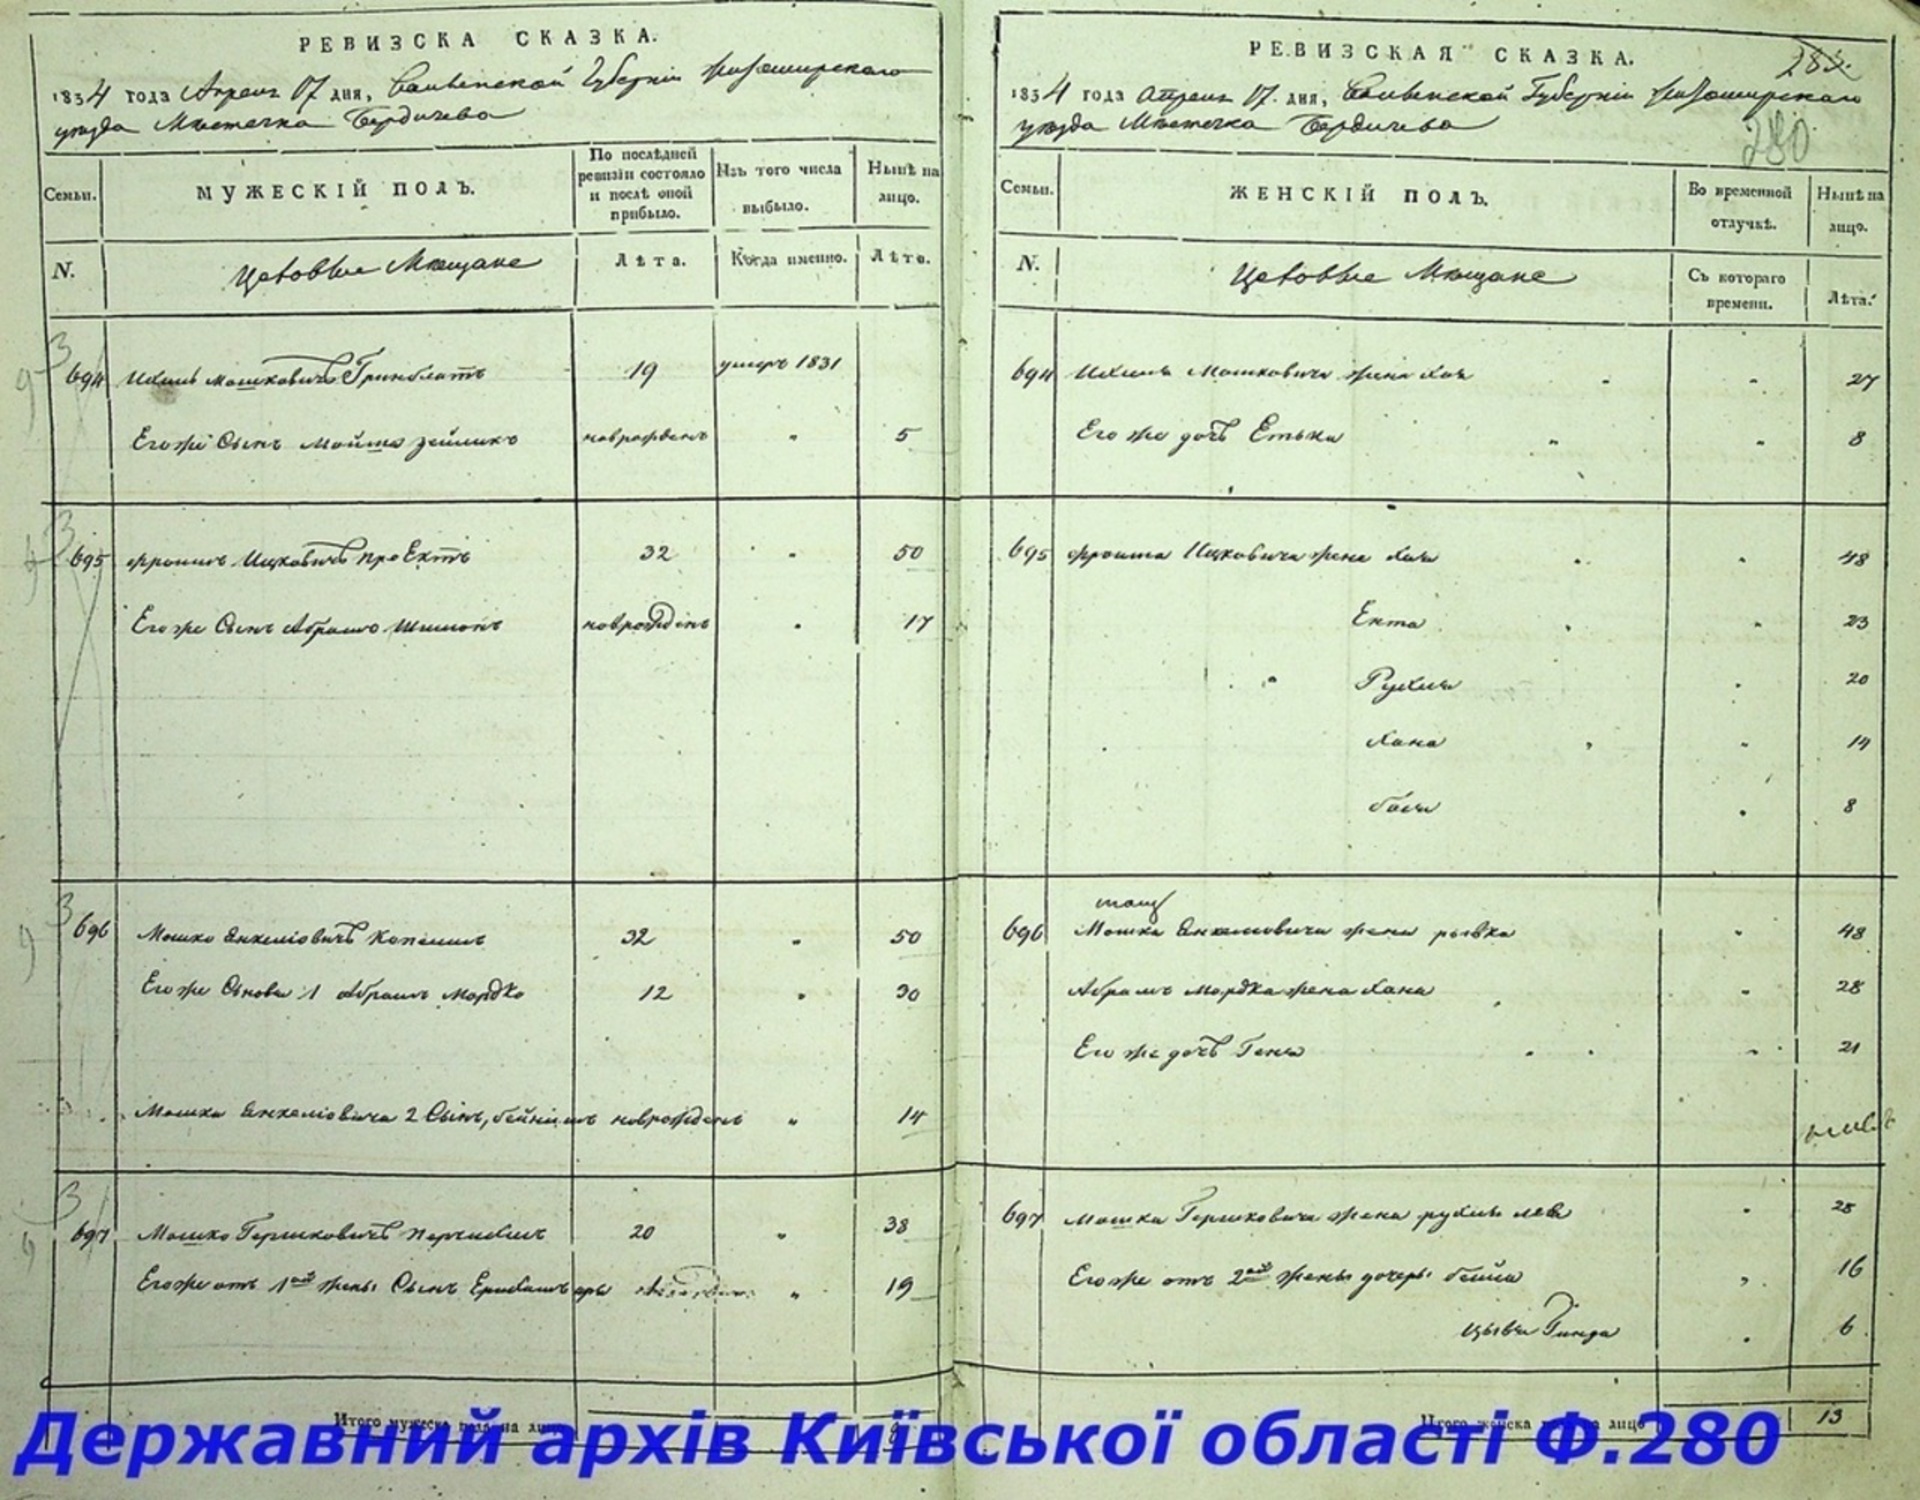 РЕВИЗСКА СКАЗКА.
1834 года Апреля 17 дня, Волынской Губернии Житомирского
уезда Местечка Бердичева
Семьи.
МУЖЕСКІЙ ПОЛЪ.
По послѣдней ревизіи состояло и послѣ оной прибыло.
Изъ того числа выбыло.
Нынѣ на лицо.
N.
Мещане
Лѣта.
Когда именно.
Лѣта.
694 Мошковичъ Гринблатъ 19 умеръ 1831
Его же Сынъ новрожденъ " 5
695 Фроимъ Ицковичъ 32 " 50
Его же Сынъ Абрамъ Шимонъ новрожденъ " 17
696 Мошко Янкеліовичъ 32 " 50
Его же Сыновья 1 Абрамъ Мордко 12 " 30
Мошка Янкеліовича 2 Сынъ, новрожденъ " 14
697 Мошко Гершковичъ 20 " 38
Его же отъ 1ой жены Сынъ " 19
Итого мужеска пола на лицо
РЕВИЗСКАЯ СКАЗКА.
283.
1834 года Апреля 17. дня, Волынской Губернии Житомирского
уезда Местечка Бердичева
280
Семьи.
ЖЕНСКІЙ ПОЛЪ.
Во временной отлучкѣ.
Нынѣ на лицо.
N.
Мещане
Съ котораго времени.
Лѣта.
694 Мошковича жена Хая " 27
Его же дочь Етька " 8
695 Фроима Ицковича жена Хая " 48
Ента " 23
Рухля " 20
Хана " 14
Бася " 8
696 Мошка Янкеліовича жена рывка " 48
Абрамъ Мордка жена Хана " 28
Его же дочь Геня " 21
697 Мошка Гершковича жена рухля лея " 25
Его же отъ 2ой жены дочеры бейла " 16
Цывя Гинда " 6
Итого женска пола на лицо 13
Державний архів Київської області Ф.280